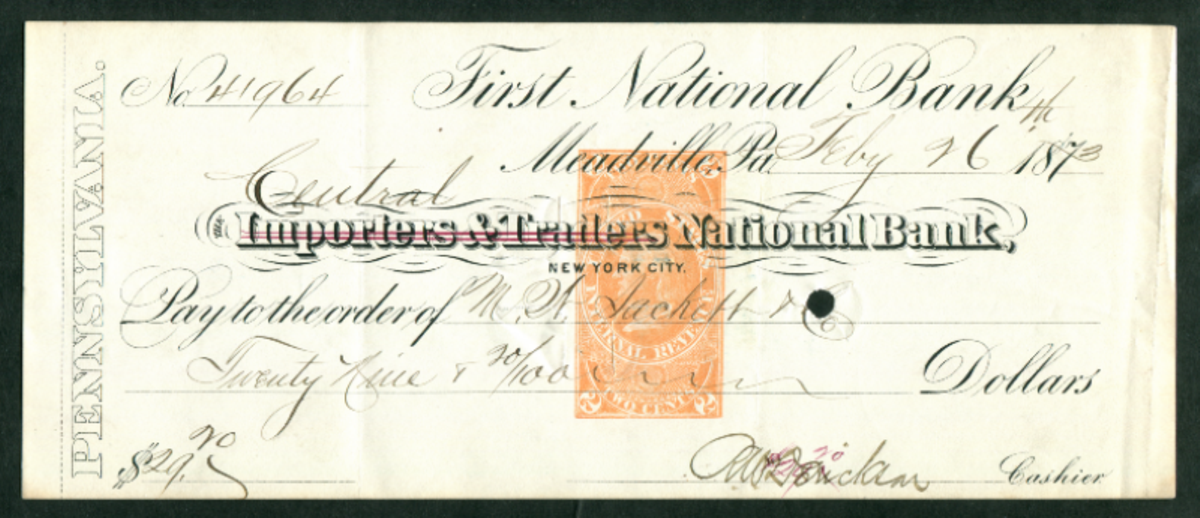 PENNSYLVANIA.
No. 41964
First National Bank
Meadville, Pa. Feby 26th 1873
Central
Importers & Traders National Bank,
NEW YORK CITY.
Pay to the order of M. H. Sackett & Co
Twenty Nine & 20/100 Dollars
INTERNAL REVENUE
2 TWO CENTS 2
$29.20
Cashier